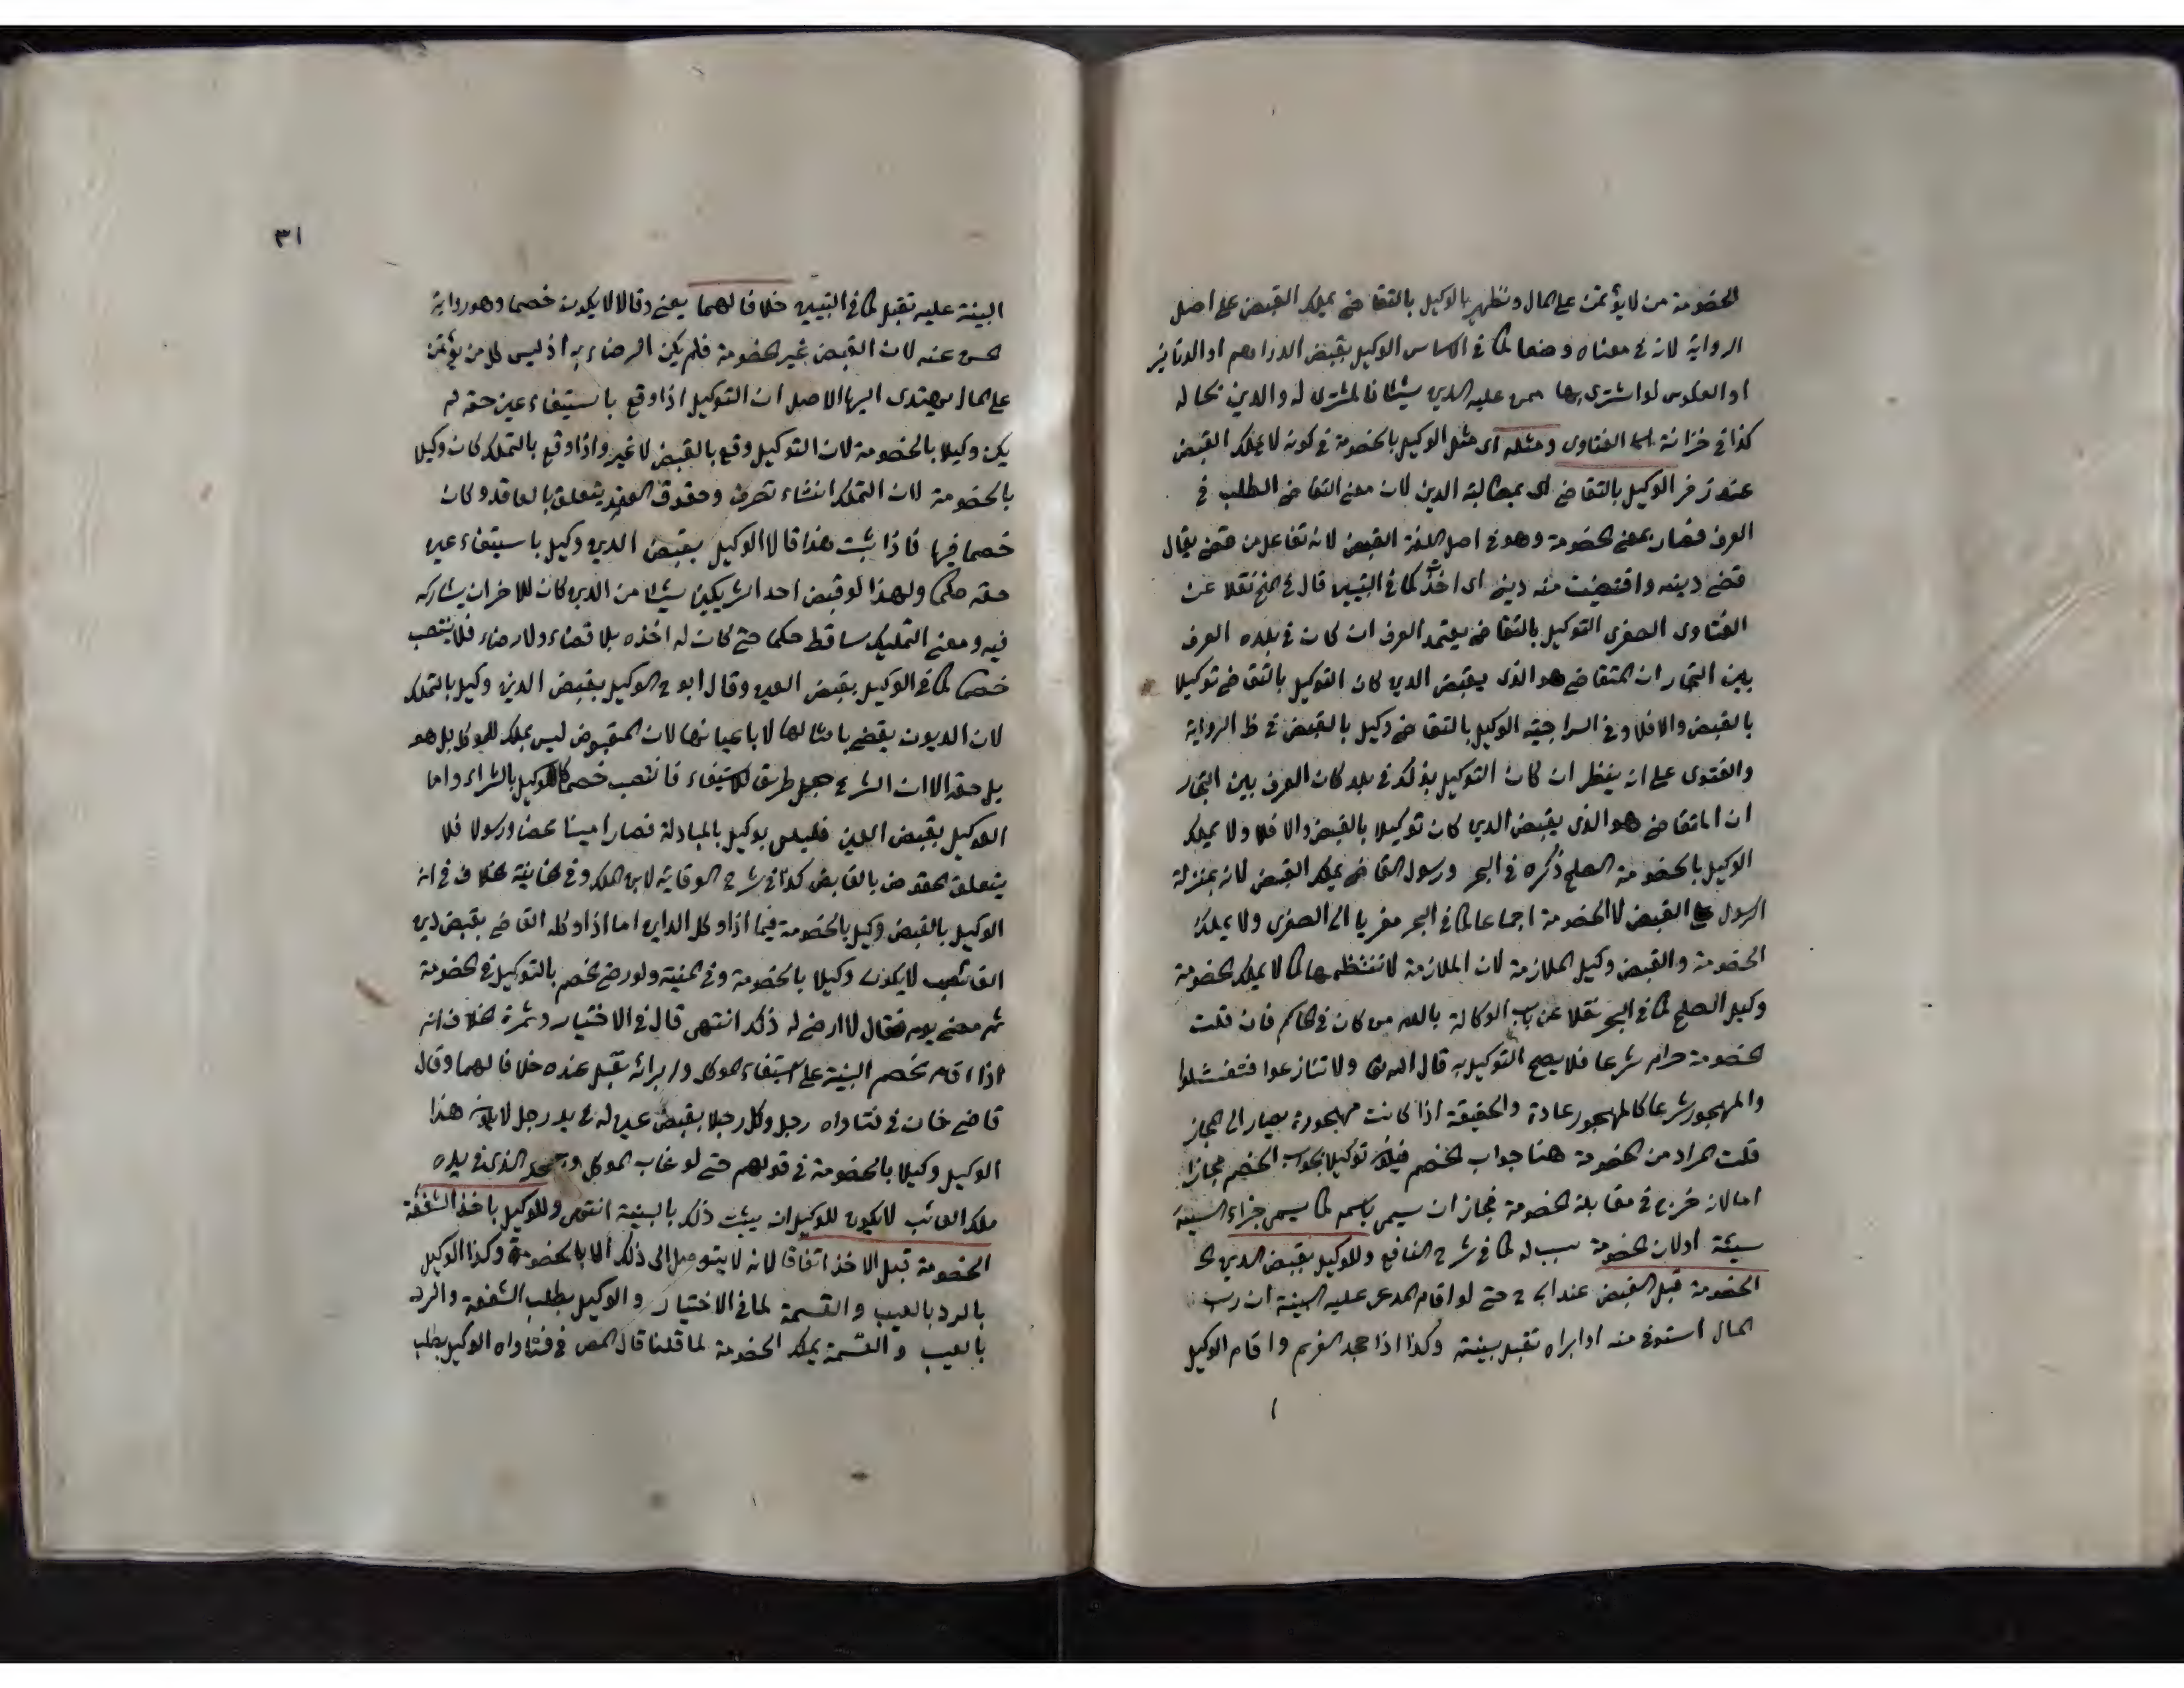 الخصومة من لا يؤتمن على المال ونظهر بالوكيل بالتقاضى يملك القبض على اصل
الرواية لانه فى معناه وضعا كما فى الاساس الوكيل بقبض الدراهم او الدنانير
او الفلوس لو اشترى بها ممن عليه الدين شيئا فالمشترى له والدين بحاله
كذا فى خزانة الفتاوى ومثله اى مثل الوكيل بالخصومة فى كونه لا يملك القبض
عند زفر الوكيل بالتقاضى اى بمطالبة الدين لان معنى التقاضى الطلب فى
العرف فصار بمعنى الخصومة وهو فى اصل اللغة القبض لانه تفاعل من قضى يقال
قضى دينه واقتضيت منه دينى اى اخذت كما فى التبيين قال فى المنح نقلا عن
الفتاوى الصغرى التوكيل بالتقاضى يعتمد العرف ان كان فى بلده العرف
بين التجار ان المتقاضى هو الذى يقبض الدين كان التوكيل بالتقاضى توكيلا
بالقبض والا فلا وفى السراجية الوكيل بالتقاضى وكيل بالقبض فى ظ الرواية
والفتوى على انه ينظر ان كان التوكيل بذلك فى بلد كان العرف بين التجار
ان المتقاضى هو الذى يقبض الدين كان توكيلا بالقبض والا فلا ولا يملك
الوكيل بالخصومة الصلح ذكره فى البحر ورسول التقاضى يملك القبض لانه بمنزلة
الرسول فى القبض لا الخصومة اجماعا كما فى البحر معزيا الى الصغرى ولا يملك
الخصومة والقبض وكيل الملازمة لان الملازمة لا تنتظمها كما لا يملك الخصومة
وكيل الصلح كما فى البحر نقلا عن باب الوكالة بالدم من كافى الحاكم فان قلت
الخصومة حرام شرعا فلا يصح التوكيل به قال الله تعالى ولا تنازعوا فتفشلوا
والمهجور شرعا كالمهجور عادة والحقيقة اذا كانت مهجورة يصار الى المجاز
قلت المراد من الخصومة هنا جواب الخصم فيكون توكيلا بجواب الخصم مجازا
اما لانه خرج فى مقابلة الخصومة فجاز ان سيمى باسمه كما يسمى جزاء السيئة
سيئة او لان الخصومة سبب له كما فى شرح النافع وللوكيل بقبض الدين
الخصومة قبل القبض عند ابى ح حتى لو اقام المدعى عليه البينة ان رب
المال استوفى منه او ابراه تقبل بينته وكذا اذا جحد الغريم واقام الوكيل
٣١
البينة عليه تقبل كما فى التبيين خلافا لهما يعنى وقالا لا يكون خصما وهو رواية
الحسن عنه لان القبض غير الخصومة فلم يكن الرضاء به اذ ليس كل من يؤتمن
على المال يهتدى اليها الاصل ان التوكيل اذا وقع باستيفاء عين حقه لم
يكن وكيلا بالخصومة لان التوكيل وقع بالقبض لا غير واذا وقع بالتملك كان وكيلا
بالخصومة لان التملك انشاء تصرف وحقوق العقد يتعلق بالعاقد وكان
خصما فيها فاذا ثبت هذا قالا الوكيل بقبض الدين وكيل باستيفاء عين
حقه حكما ولهذا لو قبض احد الشريكين شيئا من الدين كان للاخر ان يشاركه
فيه ومعنى التمليك ساقط حكما حتى كان له اخذه بلا قضاء ولا رضاء فلا ينتصب
خصما كما فى الوكيل بقبض العين وقال ابو ح الوكيل بقبض الدين وكيل بالتملك
لان الديون يقضى بامثالها لا باعيانها لان المقبوض ليس بملك للموكل بل هو
بدل حقه الا ان الشرع جعل طريق الاستيفاء فانتصب خصما كالوكيل بالشراء واما
الوكيل بقبض العين فليس بوكيل بالمبادلة فصار امينا محضا ورسولا فلا
يتعلق الحقوق بالقابض كذا فى شرح الوقاية لابن الملك وفى الخانية الخلاف فى ان
الوكيل بالقبض وكيل بالخصومة فيما اذا وكل الداين اما اذا وكله القاضى بقبض دين
الغائب لا يكون وكيلا بالخصومة وفى المنية ولو رضى الخصم بالتوكيل فى الخصومة
ثم مضى يوم فقال لا ارضى له ذلك انتهى قال فى الاختيار وثمرة الخلاف انه
اذا اقام الخصم البينة على استيفاء الموكل وابرائه تقبل عنده خلافا لهما وقال
قاضى خان فى فتاواه رجل وكل رجلا بقبض عين له فى يد رجل لا يكون هذا
الوكيل وكيلا بالخصومة فى قولهم حتى لو غاب الموكل وجحد الذى فى يده
ملك الغائب لا يكون للوكيل ان يثبت ذلك بالبينة انتهى وللوكيل باخذ الشفعة
الخصومة قبل الاخذ اتفاقا لانه لا يتوصل الى ذلك الا بالخصومة وكذا الوكيل
بالرد بالعيب والقسمة لما فى الاختيار والوكيل بطلب الشفعة والرد
بالعيب والقسمة يملك الخصومة لما قلنا قال المص فى فتاواه الوكيل بطلب